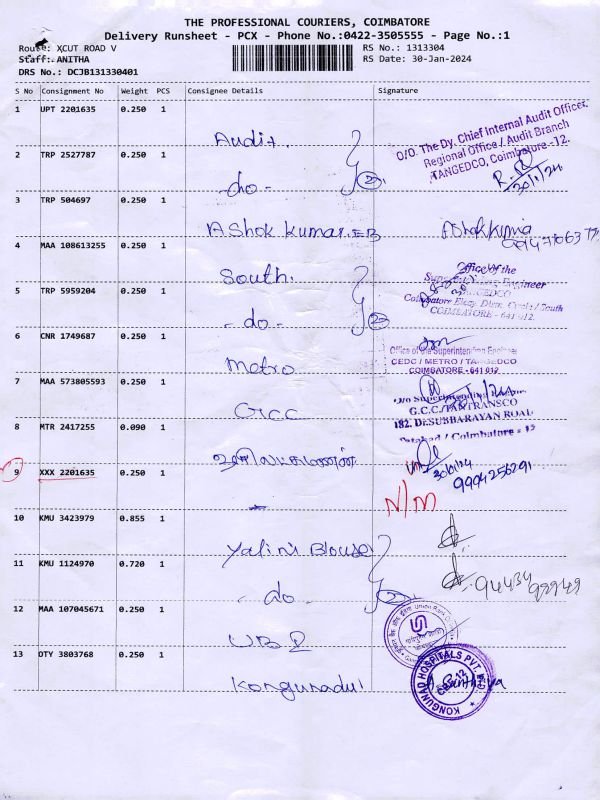 THE PROFESSIONAL COURIERS, COIMBATORE
Delivery Runsheet - PCX - Phone No.:0422-3505555 - Page No.:1
Route: XCUT ROAD V
RS No.: 1313304
Staff: ANITHA
RS Date: 30-Jan-2024
DRS No.: DCJB131330401
S No Consignment No Weight PCS Consignee Details Signature
1 UPT 2201635 0.250 1 Audit
O/O. The Dy. Chief Internal Audit Officer
Regional Office / Audit Branch
TANGEDCO, Coimbatore -12.
2 TRP 2527787 0.250 1 -do- 2
30/1/24
3 TRP 504697 0.250 1 Ashok kumar.EB
4 MAA 108613255 0.250 1 South.
Office of the
COIMBATORE - 641 012.
5 TRP 5959204 0.250 1 -do- 2
6 CNR 1749687 0.250 1 Metro
Office of the Superintending Engineer
CEDC / METRO / TANGEDCO
COIMBATORE - 641 012
7 MAA 573805593 0.250 1 GCC
G.C.C./TANTRANSCO
182, DR.SUBBARAYAN ROAD
Tatabad / Coimbatore - 12
8 MTR 2417255 0.090 1
30/01/24
9994256291
9 XXX 2201635 0.250 1
N/M
10 KMU 3423979 0.855 1 Yalini Blouse
11 KMU 1124970 0.720 1 -do- 2
12 MAA 107045671 0.250 1 UBI
13 DTY 3803768 0.250 1 Kongunadu
KONGUNAD HOSPITALS PVT. LTD
CBE-12